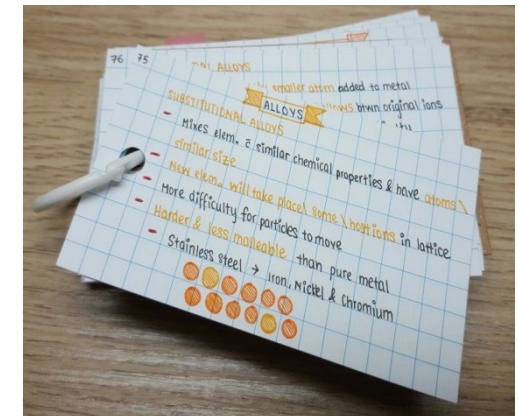 76 75
ALLOYS
smaller atom added to metal
btwn original ions
ALLOYS
SUBSTITUTIONAL ALLOYS
- Mixes elem. c̄ similar chemical properties & have atoms \
similar size
- New elem. will take place! some \ in lattice
- More difficulty for particles to move
- Harder & less malleable than pure metal
- Stainless steel → Iron, Nickel & Chromium